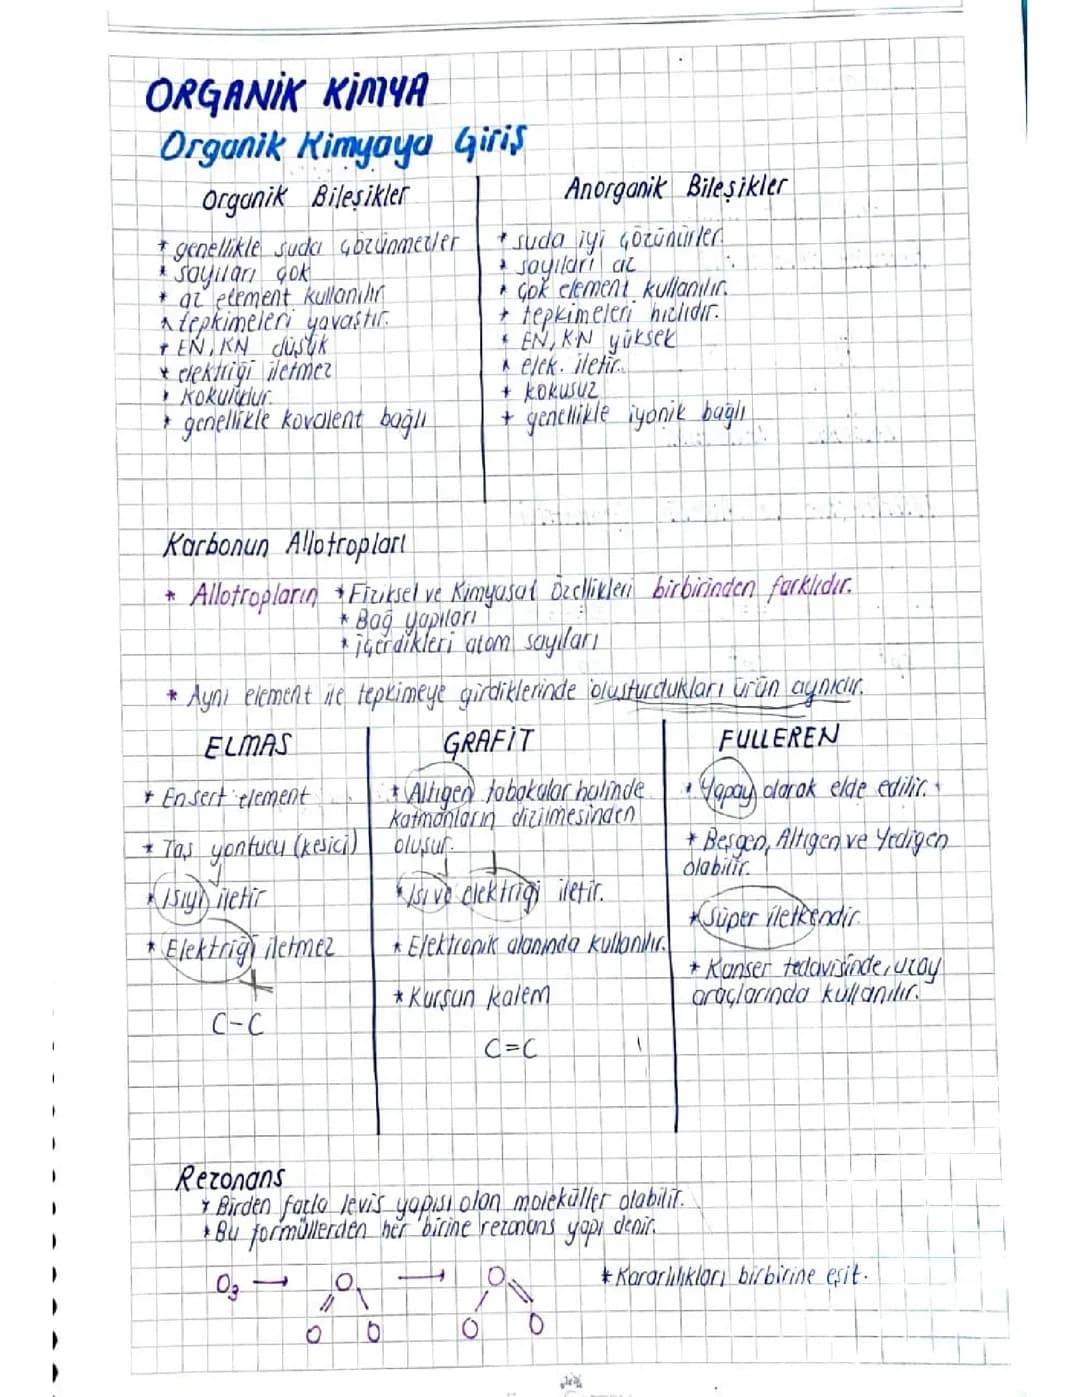 ORGANİK KİMYA
Organik Kimyaya Giriş
Organik Bileşikler
* genellikle suda çözünmezler
* sayıları çok
* az element kullanılır
* tepkimeleri yavaştır.
* EN, KN düşük
* elektriği iletmez
* Kokuludur.
* genellikle kovalent bağlı
Anorganik Bileşikler
* suda iyi çözünürler.
* sayıları az
* çok element kullanılır.
* tepkimeleri hızlıdır.
* EN, KN yüksek
* elek. iletir.
* kokusuz
* genellikle iyonik bağlı
Karbonun Allotropları
* Allotropların * Fiziksel ve Kimyasal Özellikleri birbirinden farklıdır.
* Bağ yapıları
* içerdikleri atom sayıları
* Aynı element ile tepkimeye girdiklerinde oluşturdukları ürün aynıdır.
ELMAS
* En sert element
* Taş yontucu (kesici)
* Isıyı iletir
* Elektriği iletmez
C-C
GRAFİT
* Altıgen tabakalar halinde
katmanların dizilmesinden
oluşur.
* Isı ve elektriği iletir.
* Elektronik alanında kullanılır.
* Kurşun kalem
C=C
FULLEREN
* Yapay olarak elde edilir.
* Beşgen, Altıgen ve Yedigen
olabilir.
* Süper iletkendir.
* Kanser tedavisinde, uzay
araçlarında kullanılır.
Rezonans
* Birden fazla levis yapısı olan moleküller olabilir.
* Bu formüllerden her birine rezonans yapı denir.
O3 → O → O * Kararlılıkları birbirine eşit.
O O O O